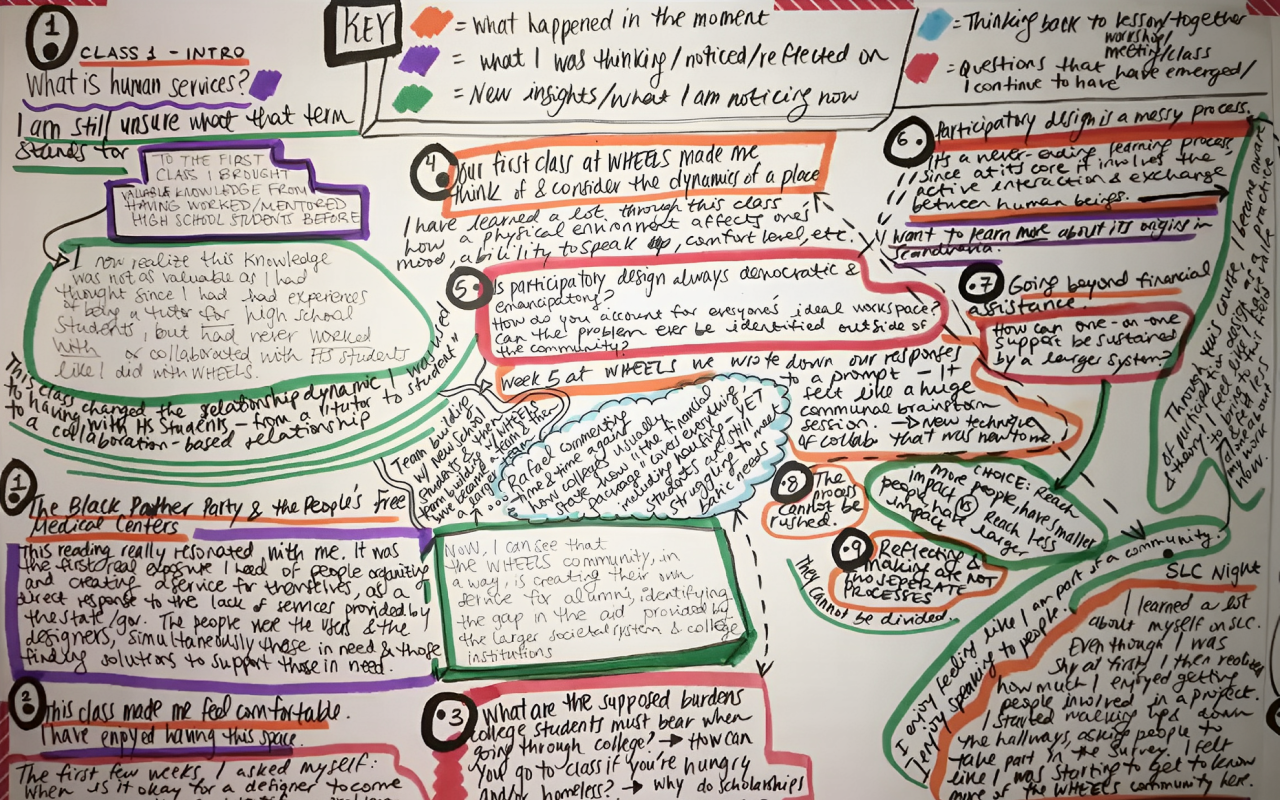 1
CLASS 1 - INTRO
What is human services?
I am still unsure what that term
stands for
TO THE FIRST
CLASS I BROUGHT
VALUABLE KNOWLEDGE FROM
HAVING WORKED/MENTORED
HIGH SCHOOL STUDENTS BEFORE
I now realize this knowledge
was not as valuable as I had
thought since I had had experiences
of being a tutor for high school
students, but had never worked
with or collaborated with HS students
like I did with WHEELS.
This class changed the relationship dynamic I was used
to having with HS Students - from a "tutor to student"
to a collaboration-based relationship
KEY
= what happened in the moment
= what I was thinking/noticed/reflected on
= New insights/what I am noticing now
= Thinking back to lesson/together
workshop/
meeting/class
= Questions that have emerged/
I continue to have
4
Our first class at WHEELS made me
think of & consider the dynamics of a place
I have learned a lot through this class
how a physical environment affects ones'
mood, ability to speak up, comfort level, etc.
5
Is participatory design always democratic &
emancipatory?
How do you account for everyone's ideal workspace?
Can the problem ever be identified outside of
the community?
week 5 at WHEELS we wrote down our responses
to a prompt - It
felt like a huge
communal brainstorm
session. → New technique
of collab that was new to me.
Team building
w/ New School
students & then
team building w/ WHEELS
we became a team & then
a larger
Rafael commenting
time & time again
how colleges usually
state how "the financial
package" covers everything
including housing - YET
students are still
struggling to meet
basic needs
6
Participatory design is a messy process.
It's a never-ending learning process,
since at its core it involves the
active interaction & exchange
between human beings.
I want to learn more about its origins in
Scandnavia.
7
Going beyond financial
assistance.
How can one-on-one
support be sustained
by a larger system?
Through this course, I became aware
of participatory design as a
theory. I feel like I want
to bring this field/practice
alive and value
my work
now.
8
The
process
cannot be
rushed.
CHOICE: Reach
more people, have smaller
impact VS Reach less
people, have larger
impact
9
Reflecting &
making are NOT
two SEPERATE
PROCESSES
They cannot be divided.
I enjoy feeling like I am part of a community.
I enjoy speaking to people.
SLC Night
I learned a lot
about myself on SLC.
Even though I was
shy at first, I then realized
how much I enjoyed getting
people involved in a project.
I started walking ups & down
the hallways, asking people to
take part in the survey. I felt
like I was starting to get to know
more of the WHEELS community here.
1
The Black Panther Party & the People's Free
Medical Centers
This reading really resonated with me. It was
the first/real exposure I had of people organizing
and creating a service for themselves, as a
direct response to the lack of services provided by
the state/gov. The people were the users & the
designers, simultaneously those in need & those
finding solutions to support those in need.
Now, I can see that
the WHEELS community, in
a way, is creating their own
service for alumni, identifying
the gap in the aid provided by
the larger societal system & college
institutions
2
This class made me feel comfortable.
I have enjoyed having this space.
The first few weeks, I asked myself:
When is it okay for a designer to come
3
What are the supposed burdens
college students must bear when
going through college? → How can
you go to class if you're hungry
and/or homeless? → Why do scholarships